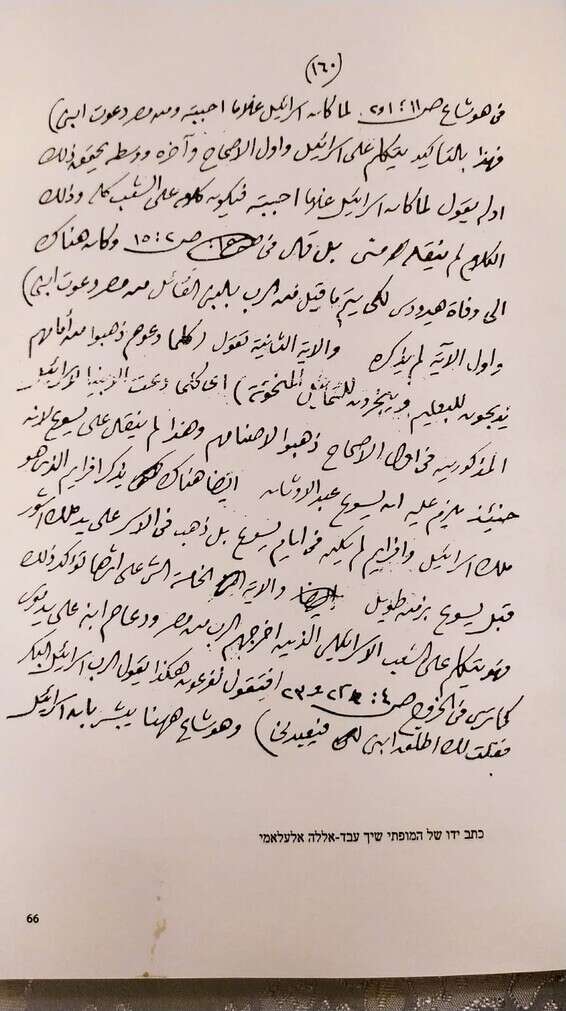 (١٦٠)
في هوشاع ص ١١: ١ و٢. لما كان اسرائيل غلاما احببته ومن مصر دعوت ابني)
فهذا بالتاكيد يتكلم على اسرائيل واول الاصحاح وآخره ووسطه يحقق ذلك
اولم يقول لما كان اسرائيل غلاما احببته فيكون كله على الشعب كله وذلك
الكلام لم ينقله متى بل قال في ص ٢: ١٥ وكان هناك
الى وفاة هيرودس لكي يتم ما قيل من الرب بالنبي القائل من مصر دعوت ابني)
واول الآية لم يذكره والاية الثانية تقول (كلما دعوهم ذهبوا من أمامهم
يذبحون للبعليم ويبخرون للتماثيل المنحوتة) اي كلما دعت الانبياء اسرائيل
المذكورين في اول الاصحاح ذهبوا لاصنامهم وهذا لم ينقل على يسوع لانه
حينئذ يلزم عليه ان يسوع عبد الاوثان ايضا هناك يذكر افرايم الذي هو
ملك اسرائيل وافرايم لم يكن في ايام يسوع بل ذهب في الاسر على يد ملك اشور
قبل يسوع بزمن طويل والاية الخامسة التي على اثرها تؤكد ذلك
فهو يتكلم على الشعب الاسرائيلي الذين اخرجهم الرب من مصر ودعاهم ابنه على يد موسى
كما ترى في الخروج ص ٤: ٢٢ و ٢٣ (فتقول لفرعون هكذا يقول الرب اسرائيل ابني البكر
فقلت لك اطلق ابني ليعبدني) وهوشاع ههنا يبشر بابه اسرائيل
כתב ידו של המופתי שיך עבד-אללה אלעלאמי
66